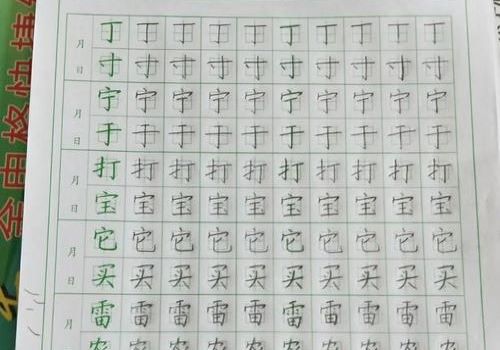 月 丁 丁 丁 丁 丁 丁 丁 丁 丁 丁
日 寸 寸 寸 寸 寸 寸 寸 寸 寸 寸
月 宁 宁 宁 宁 宁 宁 宁 宁 宁 宁
日 于 于 于 于 于 于 于 于 于 于
月 打 打 打 打 打 打 打 打 打 打
日 宝 宝 宝 宝 宝 宝 宝 宝 宝 宝
月 它 它 它 它 它 它 它 它 它 它
日 买 买 买 买 买 买 买 买 买 买
月 雷 雷 雷 雷 雷 雷 雷 雷 雷 雷
格快捷